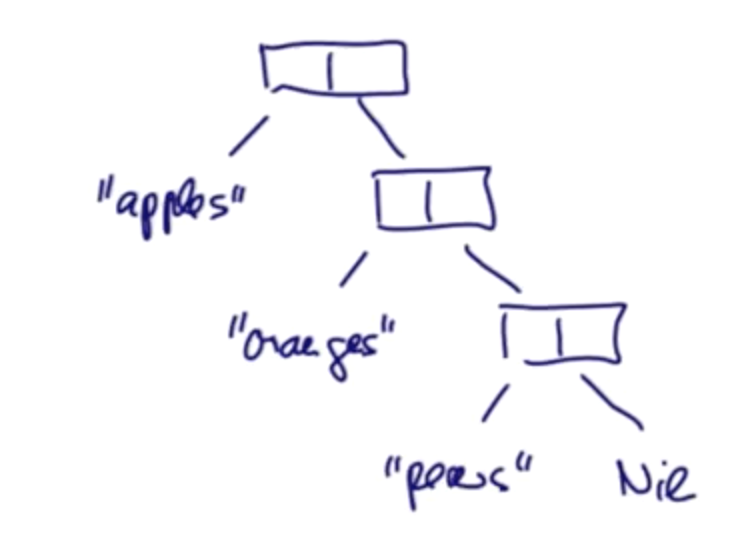 "apples"
"oranges"
"pears"
Nil